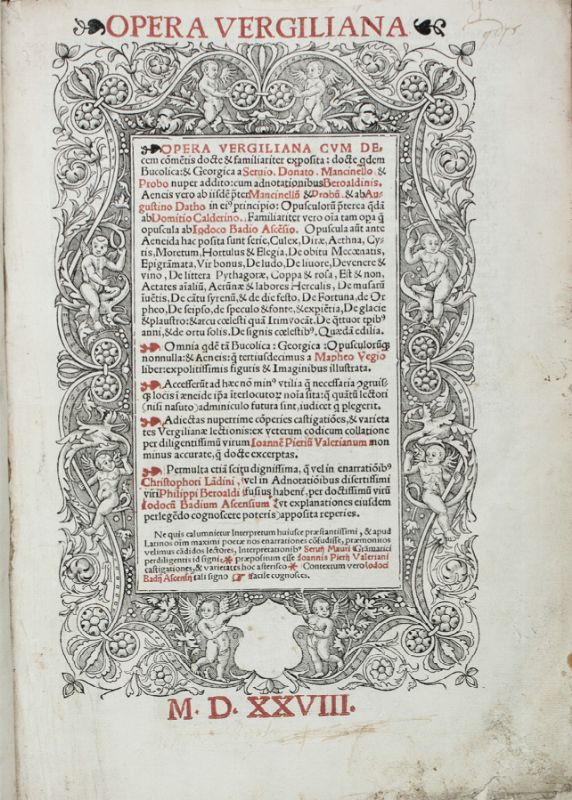 OPERA VERGILIANA
OPERA VERGILIANA CVM DE
cem cōmētis docte & familiariter exposita: docte qdem
Bucolica: & Georgica a Seruio. Donato. Mancinello &
Probo nuper addito: cum adnotationibus Beroaldinis.
Aeneis vero ab iisdē pter Mancinellū & Probū. & ab Au
gustino Datho in ei⁹ principio: Opusculorū pterea qdā
ab Domitio Calderino. Familiariter vero oīa tam opa q̄
opuscula ab Iodoco Badio Ascēsio. Opuscula aūt ante
Aeneida hac posita sunt serie, Culex, Diræ, Aethna, Cy,
ris, Moretum, Hortulus & Elegia, De obitu Mecœnatis,
Epigrāmata, Vir bonus, De ludo, De liuore, De venere &
vino, De littera Pythagoræ, Coppa & rosa, Est & non,
Aetates aīaliū, Aerūnæ & labores Herculis, De musarū
īuētis. De cātu syrenū, & de die festo. De Fortuna, de Or
pheo, De seipso, de speculo & fonte, & expiētia, De glacie
& plaustro: & arcu cœlesti quā Irim vocāt. De qttuor tpib⁹
anni, & de ortu solis. De signis cœlestib⁹. Quædā edilia.
Omnia qdē tā Bucolica: Georgica: Opusculorūq;
nonnulla: & Aeneis: q tertiusdecimus a Mapheo Vegio
liber: expolitissimis figuris & Imaginibus illustrata.
Accesserūt ad hæc nō min⁹ vtilia q̄ necessaria
q; locis ī æneide īpa īterlocutor noīa sita: q quātū lectori
(nisi nasuto) adminiculo futura sint, iudicet q plegerit.
Adiectas nuperrime cōperies castigatiōes, & varieta
tes Vergilianæ lectionis: ex veterum codicum collatione
per diligentissimū virum Ioannē Pieriū Valerianum non
minus accurate, q̄ docte excerptas.
Permulta etiā scitu dignissima, q vel in enarratiōib⁹
Christophori Lādini, vel in Adnotatiōibus disertissimi
viri Philippi Beroaldi fusius habent, per doctissimū virū
Iodocū Badium Ascensium vt explanationes eiusdem
perlegēdo cognoscere poteris) apposita reperies.
Ne quis calumnietur Interpretum huiusce præstantissimi, & apud
Latinos oīm maximi poetæ nos enarrationes cōfudisse, præmonitos
velimus cādidos lectores, Interpretationib⁹ Seruij Mauri Grāmatici
perdiligentis id signi præpositum esse Ioannis Pierij Valeriani
castigationes, & varietates hoc asterisco * Contextum vero Iodoci
Badij Ascensij tali signo ☞ facile cognosces.
M. D. XXVIII.